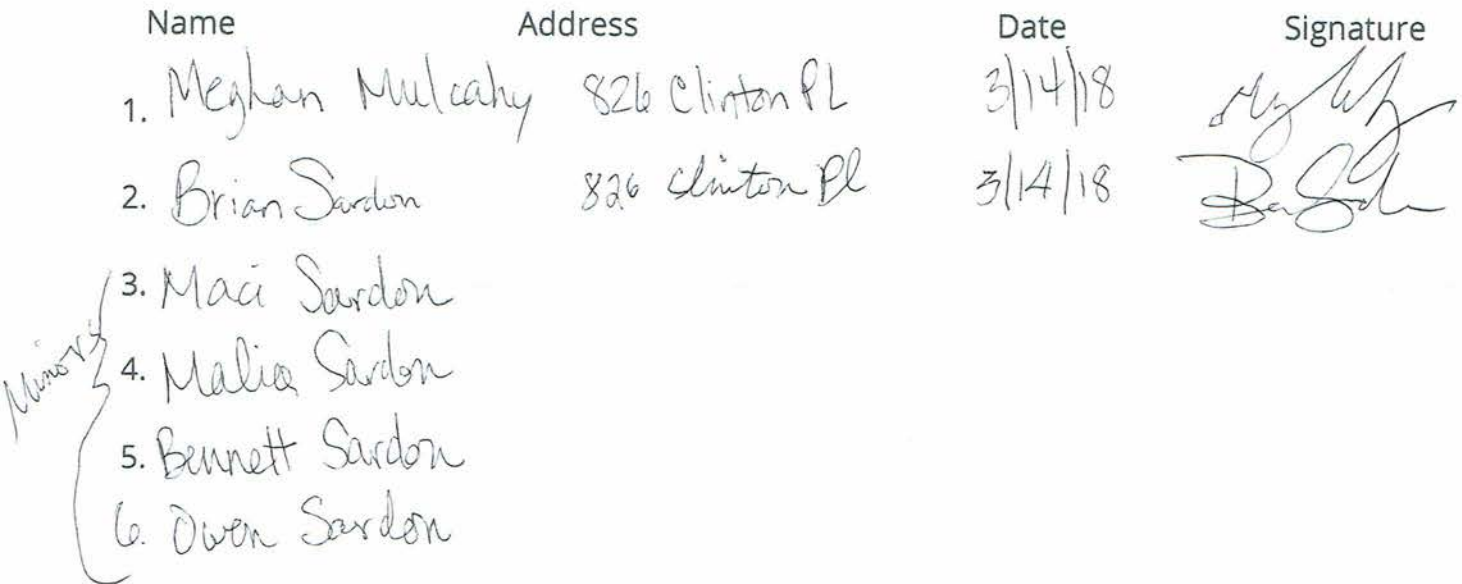 Name Address Date Signature
1. Meghan Mulcahy 826 Clinton PL 3/14/18
2. Brian Sardon 826 Clinton Pl 3/14/18
3. Maci Sardon
Minors
4. Malia Sardon
5. Bennett Sardon
6. Owen Sardon